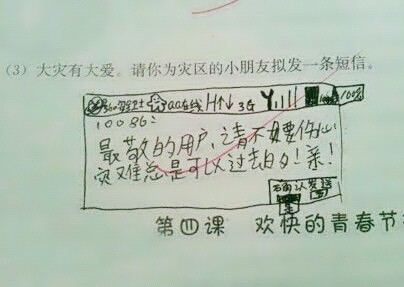 (3) 大灾有大爱。请你为灾区的小朋友拟发一条短信。
QQ在线 H↑↓ 3G 100%
10086:
最敬的用户，请不要伤心!
灾难总是可以过去的!亲!
确认发送
第四课 欢快的青春节